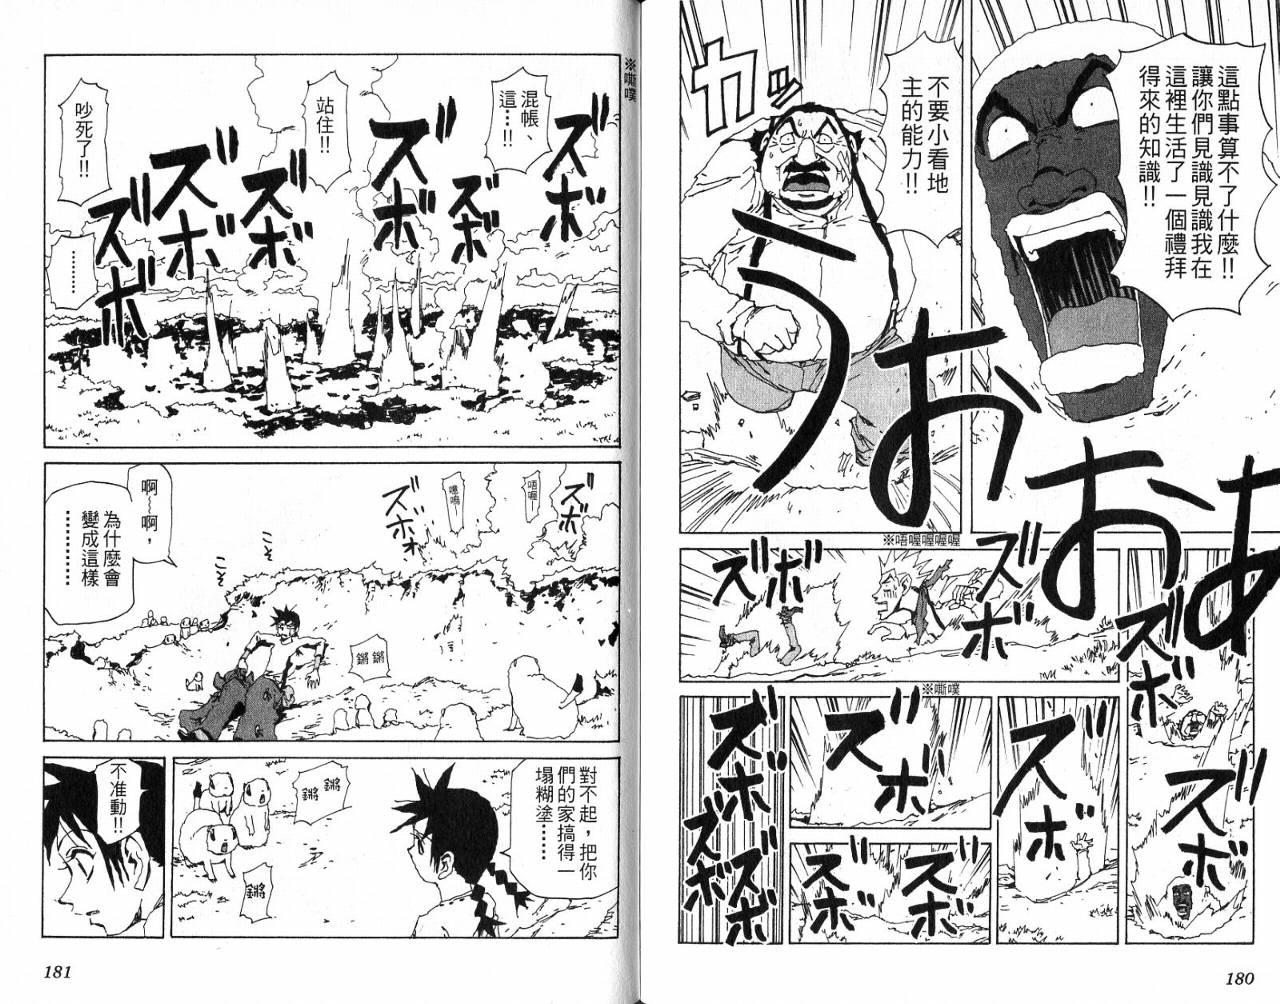 這點事算不了什麼!!
讓你們見識見識我在
這裡生活了一個禮拜
得來的知識!!
不要小看地
主的能力!!
カッ
うおおおあ
※唔喔喔喔喔
ズボ
ズボ
ズボ
ズボ
※嘶噗
ズボ
ズボ
ズボ
ズボ
ズボ
ズボ
ズボ
180
※嘶噗
混帳、
這…!!
站住!!
吵死了!!
………
ズボ
ズボ
ズボ
ズボ
ズボ
ズボ
唔喔—
噫嗚—
ズボ
ズボォ
啊…啊,
為什麼會
變成這樣
………
こそ
こそ
鏘鏘
對不起,把你
們的家搞得一
塌糊塗………
鏘鏘
鏘
不准動!!
181